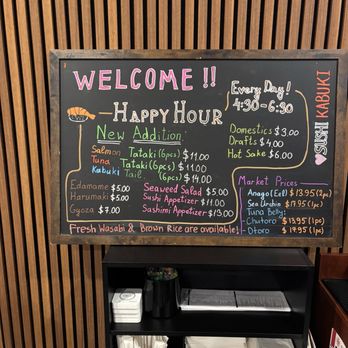 WELCOME !!
Every Day!
4:30-6:30
HAPPY HOUR
New Addition
Salmon Tataki (6pcs) $11.00
Tuna Tataki (6pcs) $11.00
Kabuki Tail (6pcs) $14.00
Domestics $3.00
Drafts $4.00
Hot Sake $6.00
Edamame $5.00
Harumaki $5.00
Gyoza $7.00
Seaweed Salad $5.00
Sushi Appetizer $11.00
Sashimi Appetizer $13.00
Market Prices
Anago (Eel) $13.95 (2pc)
Sea Urchin $17.95 (1pc)
Tuna Belly:
-Chutoro $13.95 (1pc)
-Otoro $17.95 (1pc)
Fresh Wasabi & Brown Rice are available!
SUSHI KABUKI